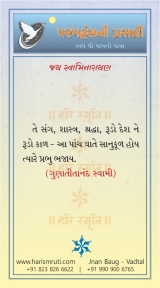 પરમહંસની પ્રસાદી
સ્વયં થી પરમની યાત્રા
જય સ્વામિનારાયણ
॥ હરિ સ્મૃતિ ॥
તે સંગ, શાસ્ત્ર, શ્રદ્ધા, રૂડો દેશ ને
રૂડો કાળ - આ પાંચ વાતે સાનુકૂળ હોય
ત્યારે પ્રભુ ભજાય.
(ગુણાતીતાનંદ સ્વામી)
॥ હરિ સ્મૃતિ ॥
www.harismruti.com Jnan Baug - Vadtal
+91 823 826 6622 | +91 990 900 6765